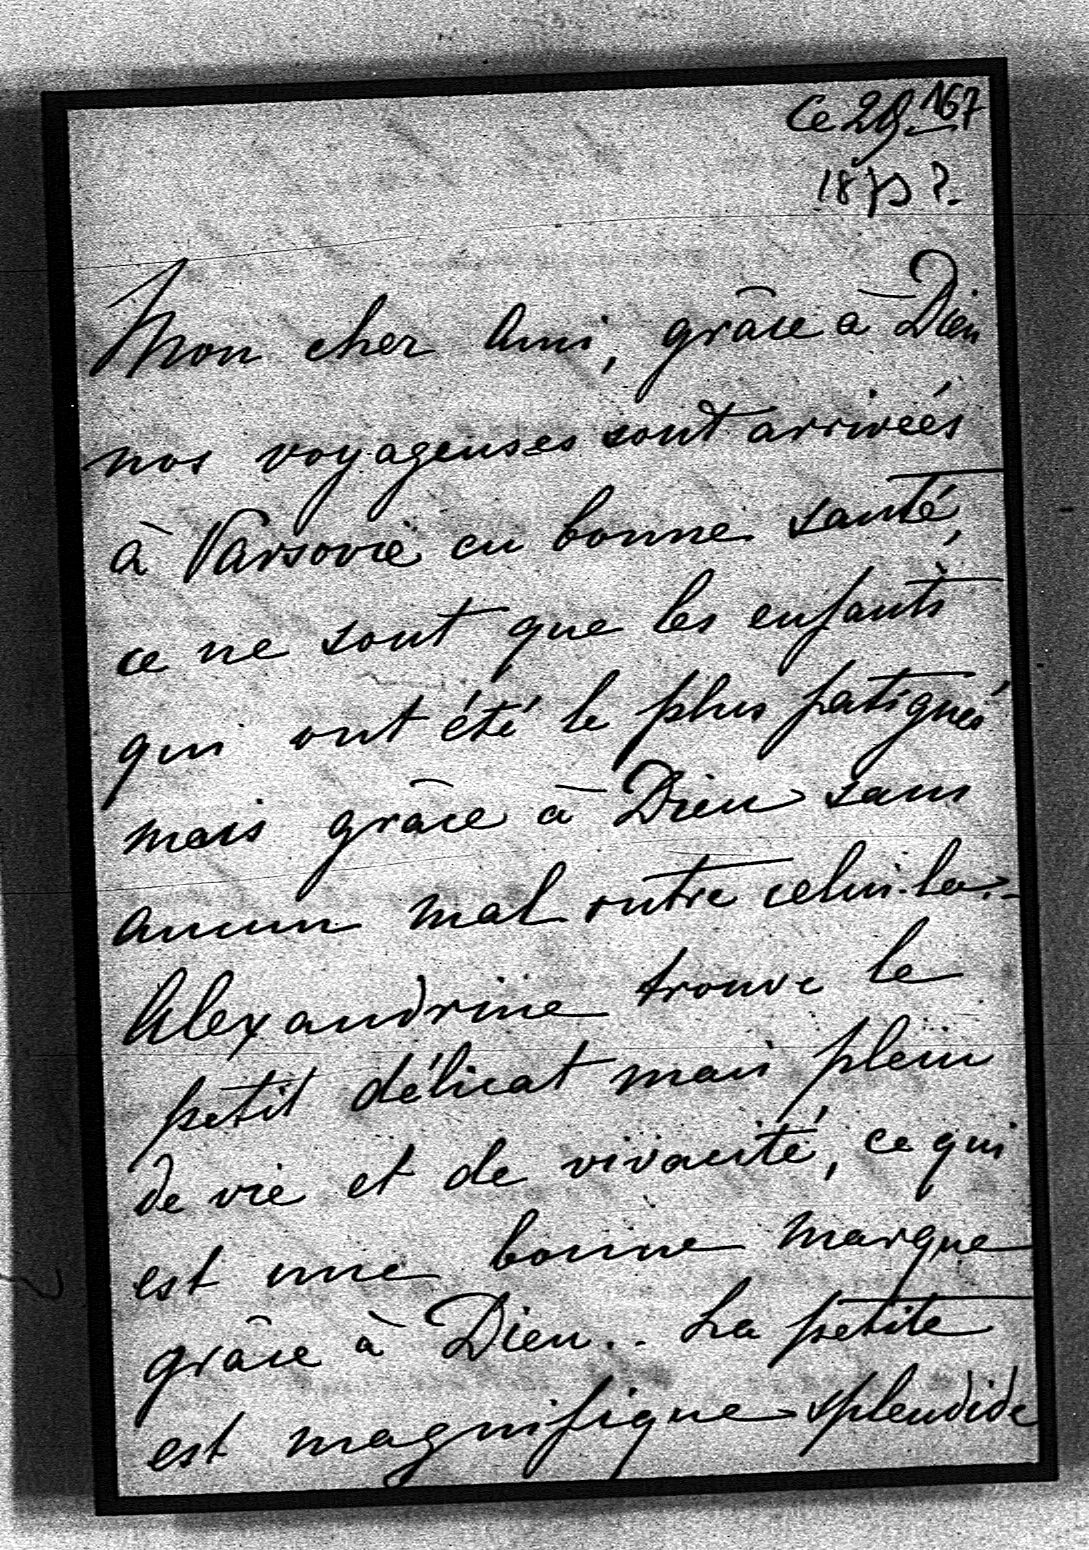 Ce 29. 167
1873?.
Mon cher Ami, grâce à Dieu
nos voyageuses sont arrivées
à Varsovie en bonne santé,
ce ne sont que les enfants
qui ont été le plus fatigués
mais grâce à Dieu sans
aucun mal outre celui-la.
Alexandrine trouve le
petit délicat mais plein
de vie et de vivacité, ce qui
est une bonne marque
grâce à Dieu.. La petite
est magnifique splendide